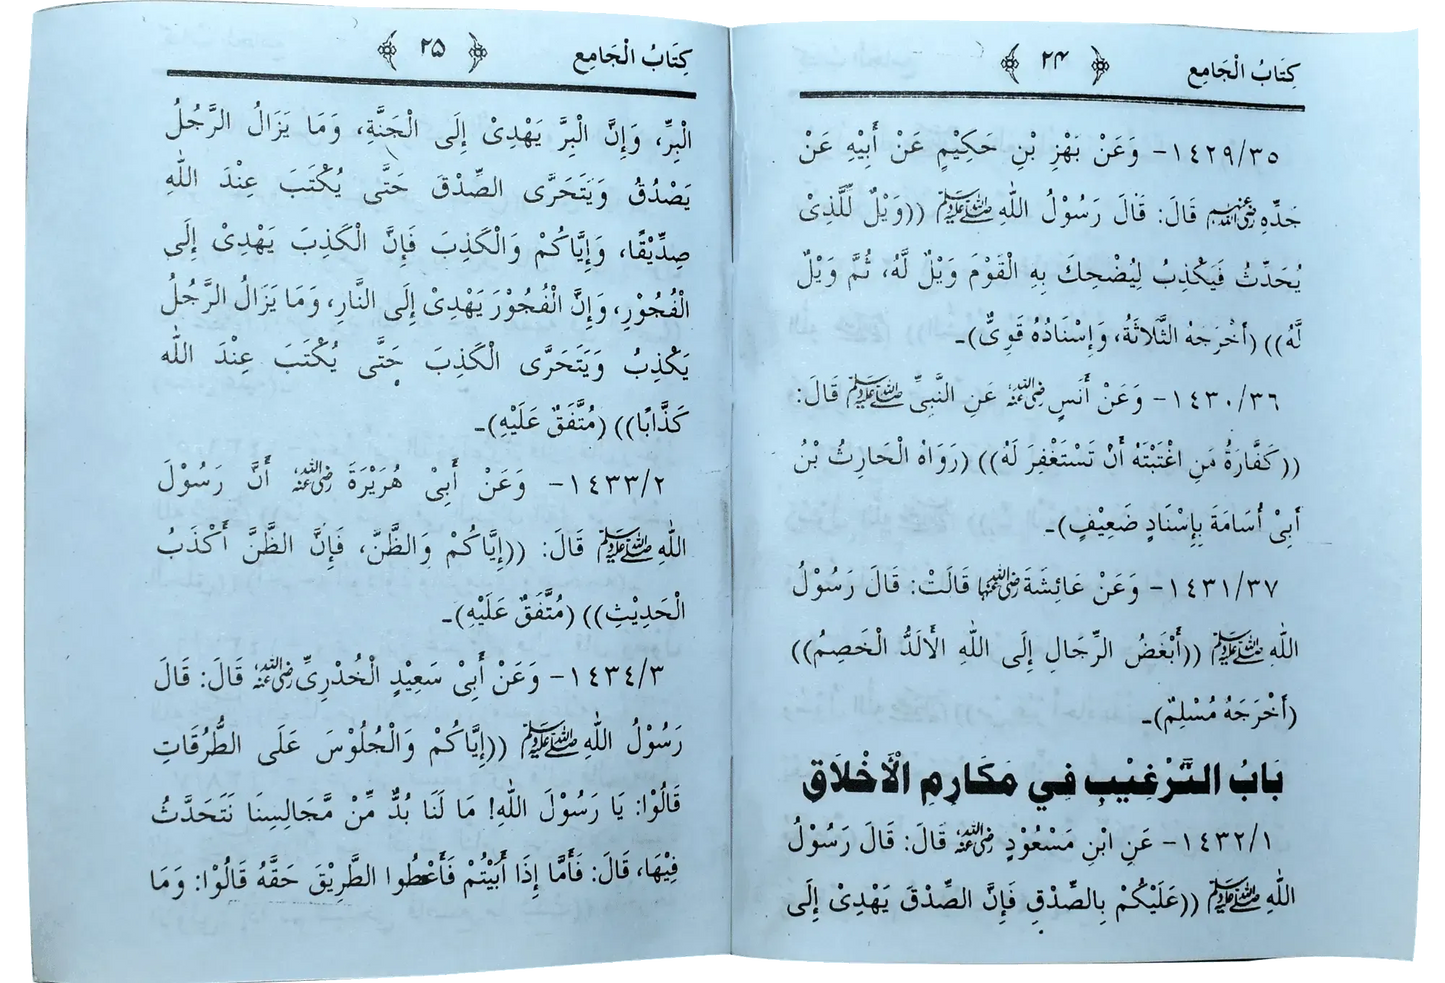 كِتَابُ الْجَامِعِ ٢٤
١٤٢٩/٣٥- وَعَنْ بَهْزِ بْنِ حَكِيْمٍ عَنْ أَبِيْهِ عَنْ
جَدِّهِ رضي الله عنهم قَالَ: قَالَ رَسُوْلُ اللهِ ﷺ ((وَيْلٌ لِّلَّذِىْ
يُحَدِّثُ فَيَكْذِبُ لِيُضْحِكَ بِهِ الْقَوْمَ وَيْلٌ لَّهُ، ثُمَّ وَيْلٌ
لَّهُ)) (أَخْرَجَهُ الثَّلَاثَةُ، وَإِسْنَادُهُ قَوِىٌّ)۔
١٤٣٠/٣٦- وَعَنْ أَنَسٍ رضي الله عنه عَنِ النَّبِىِّ ﷺ قَالَ:
((كَفَّارَةُ مَنِ اغْتَبْتَهُ أَنْ تَسْتَغْفِرَ لَهُ)) (رَوَاهُ الْحَارِثُ بْنُ
أَبِىْ أُسَامَةَ بِإِسْنَادٍ ضَعِيْفٍ)۔
١٤٣١/٣٧- وَعَنْ عَائِشَةَ رضي الله عنها قَالَتْ: قَالَ رَسُوْلُ
اللهِ ﷺ ((أَبْغَضُ الرِّجَالِ إِلَى اللهِ الْأَلَدُّ الْخَصِمُ))
(أَخْرَجَهُ مُسْلِمٌ)۔
بَابُ التَّرْغِيْبِ فِي مَكَارِمِ الْأَخْلَاقِ
١٤٣٢/١- عَنِ ابْنِ مَسْعُوْدٍ رضي الله عنه قَالَ: قَالَ رَسُوْلُ
اللهِ ﷺ ((عَلَيْكُمْ بِالصِّدْقِ فَإِنَّ الصِّدْقَ يَهْدِىْ إِلَى
كِتَابُ الْجَامِعِ ٢٥
الْبِرِّ، وَإِنَّ الْبِرَّ يَهْدِىْ إِلَى الْجَنَّةِ، وَمَا يَزَالُ الرَّجُلُ
يَصْدُقُ وَيَتَحَرَّى الصِّدْقَ حَتَّى يُكْتَبَ عِنْدَ اللهِ
صِدِّيْقًا، وَإِيَّاكُمْ وَالْكَذِبَ فَإِنَّ الْكَذِبَ يَهْدِىْ إِلَى
الْفُجُوْرِ، وَإِنَّ الْفُجُوْرَ يَهْدِىْ إِلَى النَّارِ، وَمَا يَزَالُ الرَّجُلُ
يَكْذِبُ وَيَتَحَرَّى الْكَذِبَ حَتَّى يُكْتَبَ عِنْدَ اللهِ
كَذَّابًا)) (مُتَّفَقٌ عَلَيْهِ)۔
١٤٣٣/٢- وَعَنْ أَبِىْ هُرَيْرَةَ رضي الله عنه أَنَّ رَسُوْلَ
اللهِ ﷺ قَالَ: ((إِيَّاكُمْ وَالظَّنَّ، فَإِنَّ الظَّنَّ أَكْذَبُ
الْحَدِيْثِ)) (مُتَّفَقٌ عَلَيْهِ)۔
١٤٣٤/٣- وَعَنْ أَبِىْ سَعِيْدٍ الْخُدْرِىِّ رضي الله عنه قَالَ: قَالَ
رَسُوْلُ اللهِ ﷺ ((إِيَّاكُمْ وَالْجُلُوْسَ عَلَى الطُّرُقَاتِ
قَالُوْا: يَا رَسُوْلَ اللهِ! مَا لَنَا بُدٌّ مِّنْ مَّجَالِسِنَا نَتَحَدَّثُ
فِيْهَا، قَالَ: فَأَمَّا إِذَا أَبَيْتُمْ فَأَعْطُوا الطَّرِيْقَ حَقَّهُ قَالُوْا: وَمَا